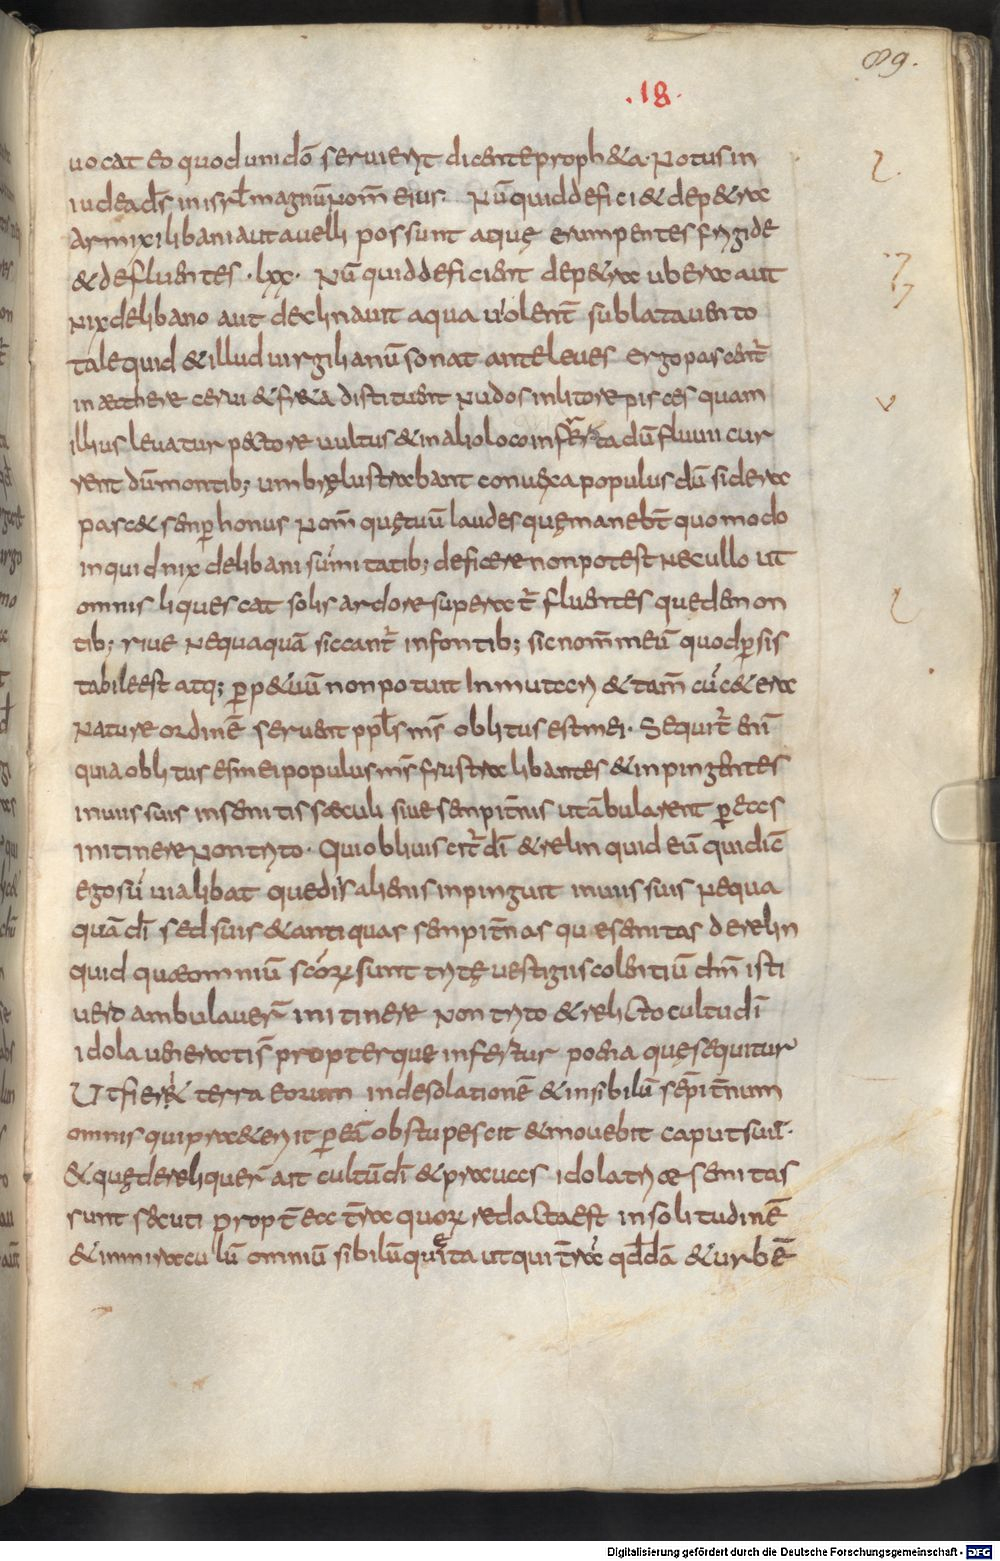 89.
.18.
uocat eo quod uni dō seruient dicente proph&a. Notus in
iudea d̄s in isrl̄ magnū nom̄ eius. Nūquid defici& de p&ra
agri nix libani aut auelli possunt aquę erumpentes frigide
& defluentes. lxx. Nūquid deficient de p&ra ubera aut
nix de libano aut declinauit aqua uiolent̄ sublata uento
tale quid & illud uirgilianū sonat ante leues ergo pascent̄
in aethere cerui & fr&a distituent nudos in litore pisces quam
illius leuatur pectore uultus & in alio loco in fr&a dū fluuii cur
rent dū montib; umbrę lustrabant conuexa populus dū sidera
pasc& semp honus nom̄ quę tuū laudes quę manebt̄ quomodo
inquid nix de libani sūmitatib; deficere non potest nec ullo ut
omnis liquescat solis ardore superat̄ fluentes que de mon
tib; riue nequaquā siccant̄ in fontib; sic nom̄ meū quod p sis
tabile est atq; p p&uū non potuit inmutari & tam̄ cū c&era
nature ordinē seruent ppl̄s ms̄ oblitus est mei. Sequit̄ enī
quia oblitus est mei populus ms̄ frustra libantes & inpingentes
in uiis suis in semitis sæculi siue sempit̄nis ut ābularent p eas
in itinere non trito. Qui obliuiscit̄ dī & relinquid eū qui dic̄
ego sū uia libat que dis alienis inpinguit in uiis suis nequa
quā dī sed suis & antiquas sempit̄nas que semitas derelin
quid quæ omniū scōrꝝ sunt tritę uestigiis colentiū dm̄ isti
uero ambulauer̄ in itinere non trito & relicto cultu dī
idola uenerati s̄ propterque infertur poena quę sequitur
Ut fier& terra eorum in desolationē & in sibilū sēpit̄num
omnis qui præ&erierit p eā obstupescit & mouebit caput suū.
& quę dereliquer̄ ait cultū dī & prauas idolatriæ semitas
runt secuti propt̄ea t̄ra quorꝝ redacta est in solitudinē
& in miraculū omniū sibilū quę ita ut qui t̄ra qd̄dā & urbē
Digitalisierung gefördert durch die Deutsche Forschungsgemeinschaft - DFG